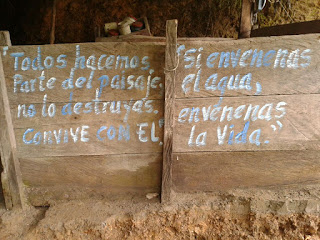 "Todos hacemos
Parte del paisaje,
no lo destruyas.
CONVIVE CON EL."
"Si envenenas
el agua,
envénenas
la Vida."